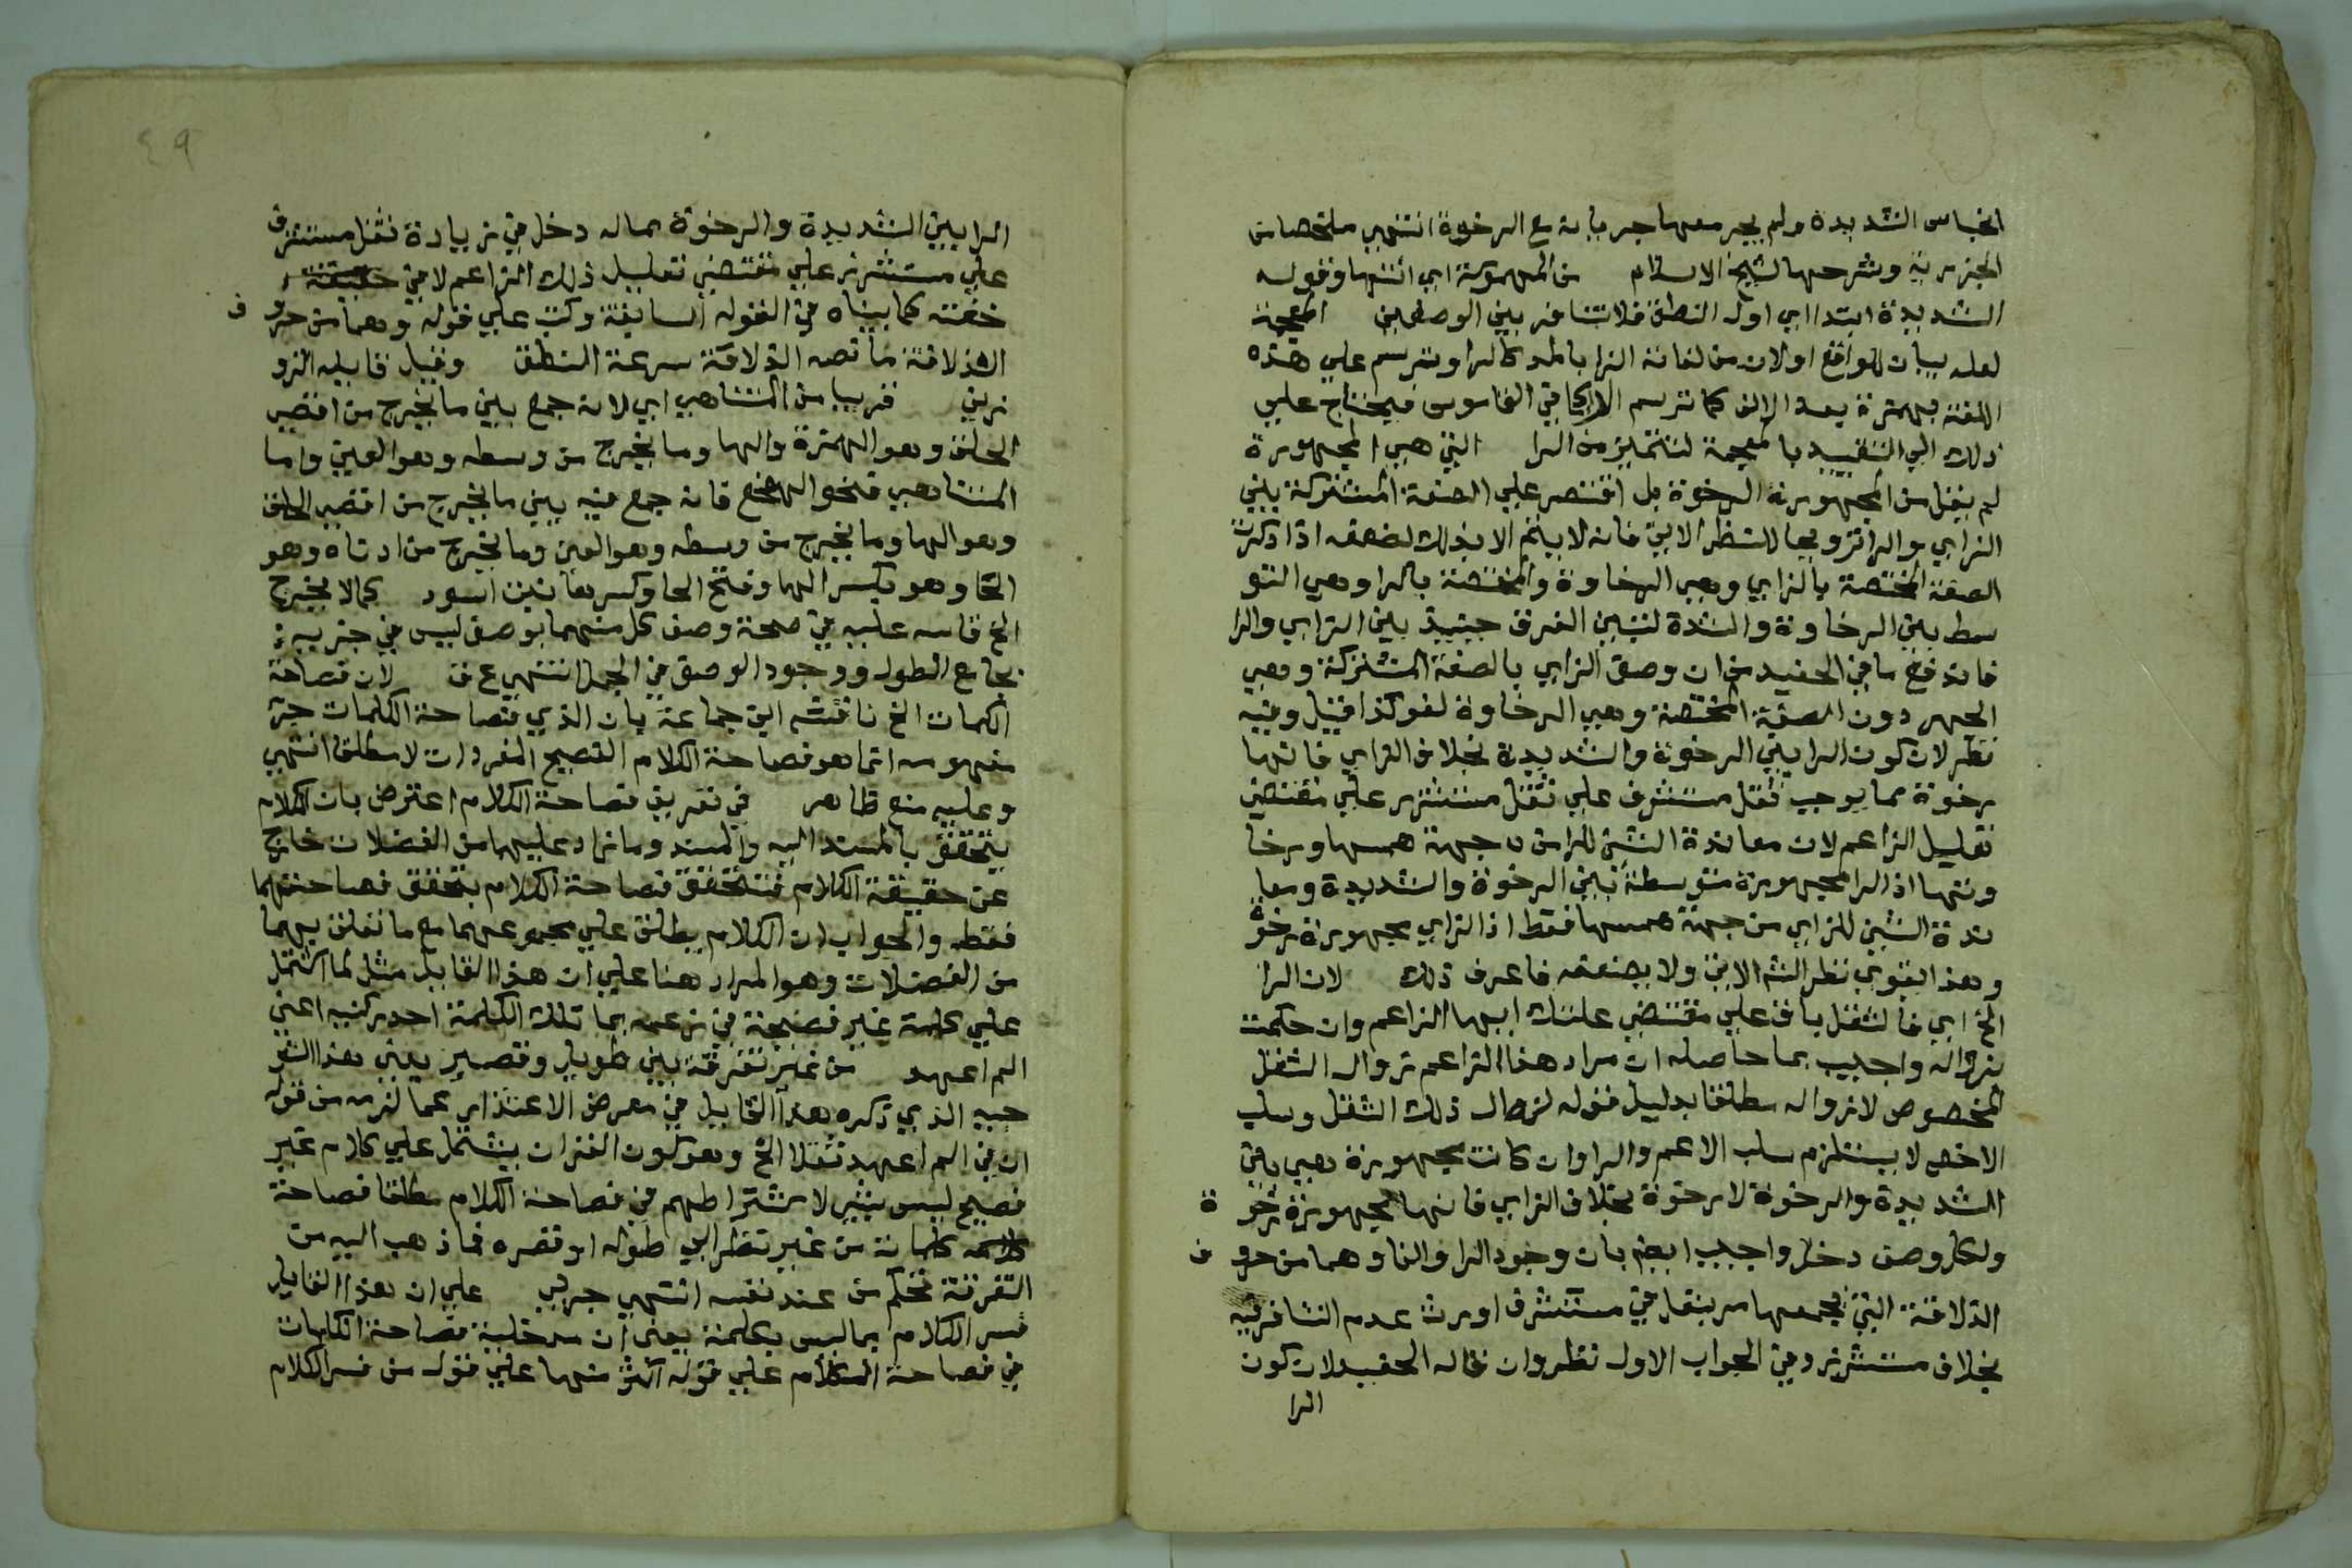 انحباس الشديدة ولم يجر معها جريانه مع الرخوة انتهى ملخصا من
الجزرية وشرحها لشيخ الاسلام من المهموسة اي انتها وقوله
الشديدة ابتدا اي اول النطق فلا تنافر بين الوصفين المعجمة
لعله بيان للواقع او لان من لغاته الزا بالمد كالرا وترسم على هذه
اللغة بهمزة بعد الالف كما ترسم الرا كما في القاموس فيحتاج على
ذلك الى التقييد بالمعجمة لتتميز من الرا التي هي المجهورة
لم يقل من المجهورة الرخوة بل اقتصر على الصفة المشتركة بين
الزاي والرا ترويجا للنظر الاتي فانه لا يتم الا بذلك لضعفه اذا ذكرت
الصفة المختصة بالزاي وهي الرخاوة والمختصة بالرا وهي التو
سط بين الرخاوة والشدة لتبين الفرق حينيذ بين الزاي والرا
فاندفع ما في الحفيد من ان وصف الزاي بالصفة المشتركة وهي
الجهر دون الصفة المختصة وهي الرخاوة لغو كذا قيل وفيه
نظر لان كون الرا بين الرخوة والشديدة بخلاف الزاي فانها
رخوة مما يوجب ثقل مستشرف على ثقل مستشزر على مقتضى
تعليل الزاعم لان معاندة الشين للرا من جهة همسها ورخا
وتها اذ الرا مجهورة متوسطة بين الرخوة والشديدة ومعا
ندة الشين للزاي من جهة همسها فقط اذ الزاي مجهورة رخوة
وهذا يقوي نظر الشم الاتي ولا يضعفه فاعرف ذلك لان الرا
الخ اي فالثقل باق على مقتضى علتك ايها الزاعم وان حكمت
بزواله واجيب بما حاصله ان مراد هذا الزاعم زوال الثقل
المخصوص لا زواله مطلقا بدليل قوله لزال ذلك الثقل وسلب
الاخص لا يستلزم سلب الاعم والرا وان كانت مجهورة هي بين
الشديدة والرخوة لا رخوة بخلاف الزاي فانها مجهورة رخوة
ولكل وصف دخل واجيب ايضم بان وجود الرا والفا وهما من حروف
الذلاقة التي يجمعها مر بنفل في مستشرف اورث عدم التنافر فيه
بخلاف مستشزر وفي الجواب الاول نظر وان قاله الحفيد لان كون
الرا
٤٩
الرا بين الشديدة والرخوة مما له دخل في زيادة ثقل مستشرف
على مستشزر على مقتضى تعليل ذلك الزاعم لا في حقيقة
خفته كما بيناه في القوله السابقة وكتب على قوله وهما من حروف
الذلاقة ما نصه الذلاقة سرعة النطق وقيل قايله الزو
زني قريبا من المتناهي اي لانه جمع بين ما يخرج من اقصى
الحلق وهو الهمزة والها وما يخرج من وسطه وهو العين واما
المتناهي فنحو الهعخع فانه جمع فيه بين ما يخرج من اقصى الحلق
وهو الها وما يخرج من وسطه وهو العين وما يخرج من ادناه وهو
الخا وهو بكسر الها وفتح الخا وكسرها نبت اسود كما لا يخرج
الخ قاسه عليه في صحة وصف كل منهما بوصف ليس في جزيه
بجامع الطول ووجود الوصف في الجمل انتهى ع ق لان فصاحة
الكلمات الخ ناقشه ابن جماعة بان الذي فصاحة الكلمات جزء
مفهومه انما هو فصاحة الكلام الفصيح المفردات لا مطلقا انتهى
وعليه منع ظاهر في تعريف فصاحة الكلام اعترض بان الكلام
يتحقق بالمسند اليه والمسند وما زاد عليهما من الفضلات خارج
عن حقيقة الكلام فتتحقق فصاحة الكلام بتحقق فصاحتهما
فقط والجواب ان الكلام يطلق على مجموعهما مع ما تعلق بهما
من الفضلات وهو المراد هنا على ان هذا القايل مثل لما اشتمل
على كلمة غير فصيحة في زعمه بما تلك الكلمة احد ركنيه اعني
الم اعهد من غير تفرقة بين طويل وقصير يعني هذا التو
جيه الذي ذكره هذا القايل في معرض الاعتذار عما لزمه من قوله
ان في الم اعهد ثقلا الخ وهو كون القران يشتمل على كلام غير
فصيح ليس بشي لاشتراطهم في فصاحة الكلام مطلقا فصاحة
كلماته من غير نظر الى طوله او قصره فما ذهب اليه من
التفرقة تحكم من عند نفسه انتهى جربي على ان هذا القايل
فسر الكلام بما ليس بكلمة يعني ان مدخلية فصاحة الكلمات
في فصاحة الكلام على قوله اكثر منها على قول من فسر الكلام